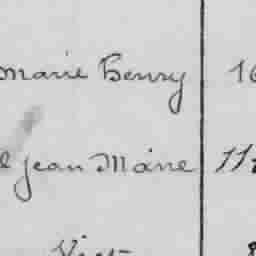 Marie Henry 16
Jean Marie 11
Vict